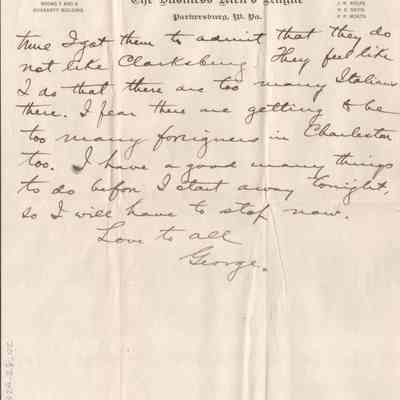 ROOMS 7 AND 8
The Business Men's League
J. W. WOLFE
Parkersburg, W. Va.
time I got them to admit that they do
not like Clarksburg. They feel like
I do that there are too many Italians
there. I fear there are getting to be
too many foreigners in Charleston
too. I have a good many things
to do before I start away tonight,
so I will have to stop now.
Love to all
George.